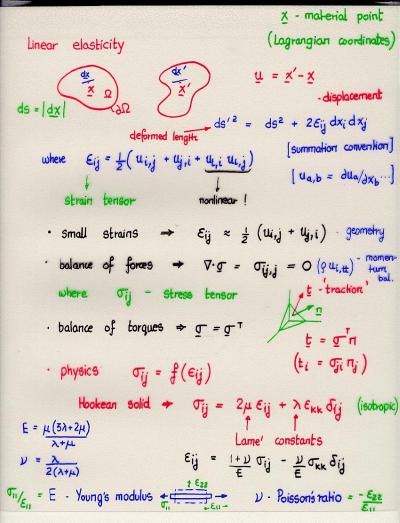 x - material point
Linear elasticity
(Lagrangian coordinates)
dx
x
Ω
∂Ω
dx'
x'
u = x' - x
- displacement
ds = |dx|
deformed length → ds'² = ds² + 2εij dxi dxj
where εij = ½(ui,j + uj,i + ui,i ui,j)
[summation convention]
[ua,b = ∂ua/∂xb ...]
strain tensor
nonlinear!
• small strains → εij ≈ ½ (ui,j + uj,i) - geometry
• balance of forces → ∇·σ = σij,j = 0 (ρ ui,tt) - momentum bal.
where σij - stress tensor
t - 'traction'
n
• balance of torques → σ = σᵀ
t = σᵀn
(ti = σji nj)
• physics σij = f(εij)
Hookean solid → σij = 2μ εij + λ εkk δij (isotropic)
Lame' constants
E = μ(3λ+2μ)/λ+μ
ν = λ/2(λ+μ)
εij = 1+ν/E σij - ν/E σkk δij
σ11/ε11 = E - Young's modulus
ε22
σ11
ε11
ν - Poisson's ratio = -ε22/ε11